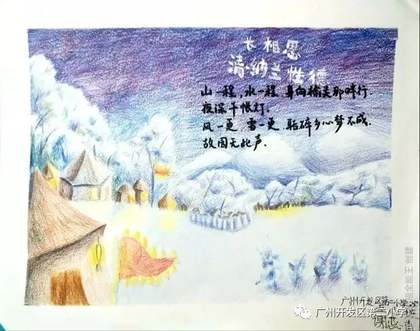 长相思
清·纳兰性德
山一程，水一程，身向榆关那畔行，
夜深千帐灯。
风一更，雪一更，聒碎乡心梦不成，
故园无此声。
广州开发区第二小学